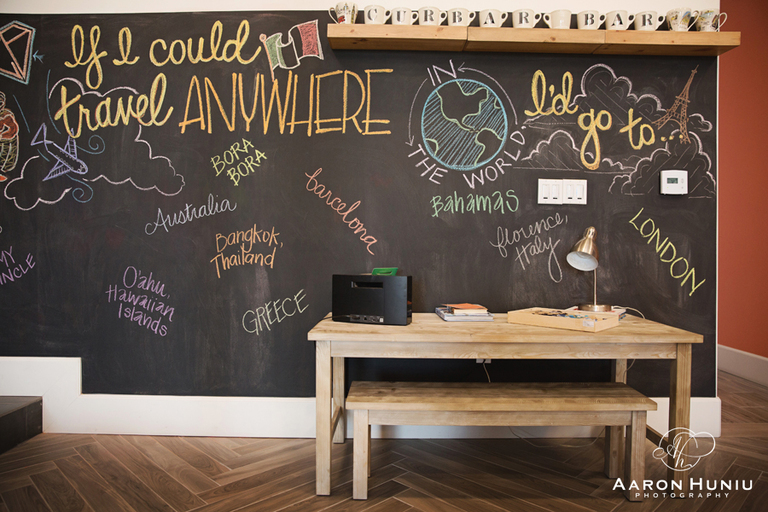 CURBAR BAR
If I could
travel ANYWHERE
IN
THE WORLD
I'd
go to...
BORA
BORA
Australia
barcelona
Bahamas
Bangkok,
Thailand
florence,
Italy
LONDON
O'ahu,
Hawaiian
Islands
GREECE
AH
AARON HUNIU
PHOTOGRAPHY